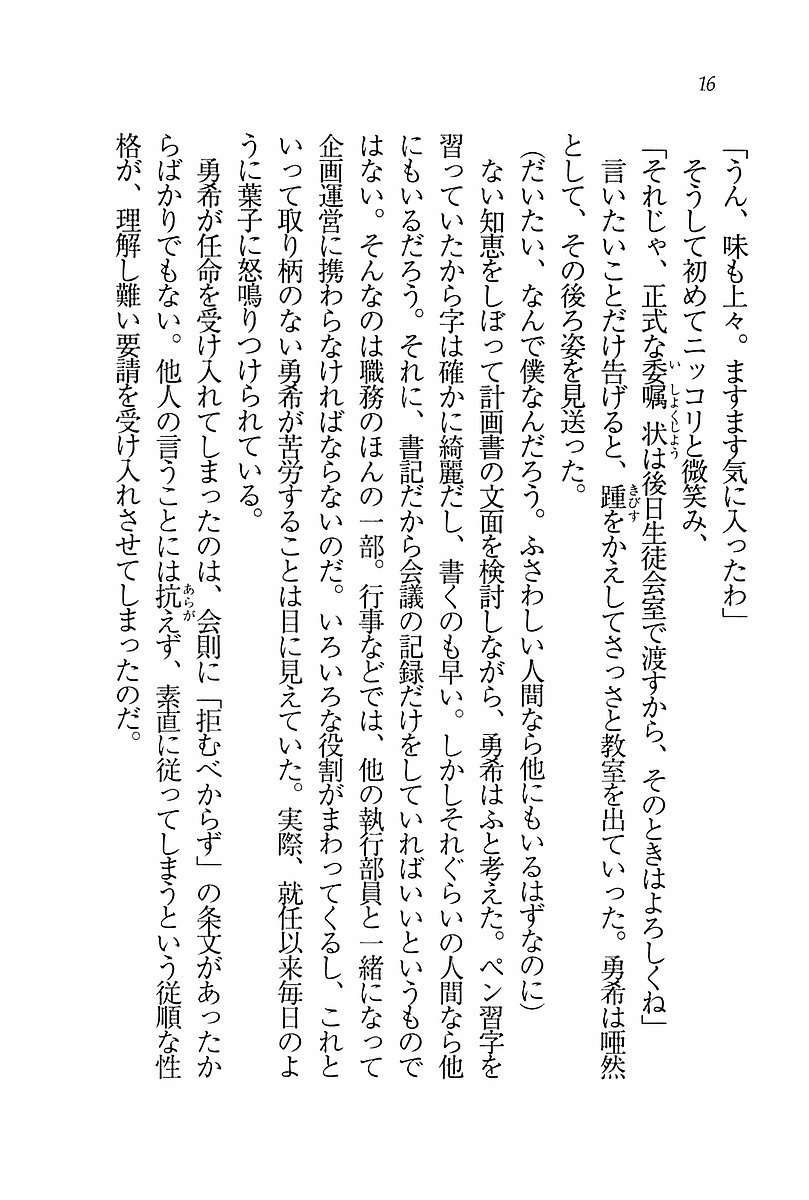 16
「うん、味も上々。ますます気に入ったわ」
そうして初めてニッコリと微笑み、
「それじゃ、正式な委嘱状は後日生徒会室で渡すから、そのときはよろしくね」
言いたいことだけ告げると、踵をかえしてさっさと教室を出ていった。勇希は唖然
として、その後ろ姿を見送った。
(だいたい、なんで僕なんだろう。ふさわしい人間なら他にもいるはずなのに)
ない知恵をしぼって計画書の文面を検討しながら、勇希はふと考えた。ペン習字を
習っていたから字は確かに綺麗だし、書くのも早い。しかしそれぐらいの人間なら他
にもいるだろう。それに、書記だから会議の記録だけをしていればいいというもので
はない。そんなのは職務のほんの一部。行事などでは、他の執行部員と一緒になって
企画運営に携わらなければならないのだ。いろいろな役割がまわってくるし、これと
いって取り柄のない勇希が苦労することは目に見えていた。実際、就任以来毎日のよ
うに葉子に怒鳴りつけられている。
勇希が任命を受け入れてしまったのは、会則に「拒むべからず」の条文があったか
らばかりでもない。他人の言うことには抗えず、素直に従ってしまうという従順な性
格が、理解し難い要請を受け入れさせてしまったのだ。